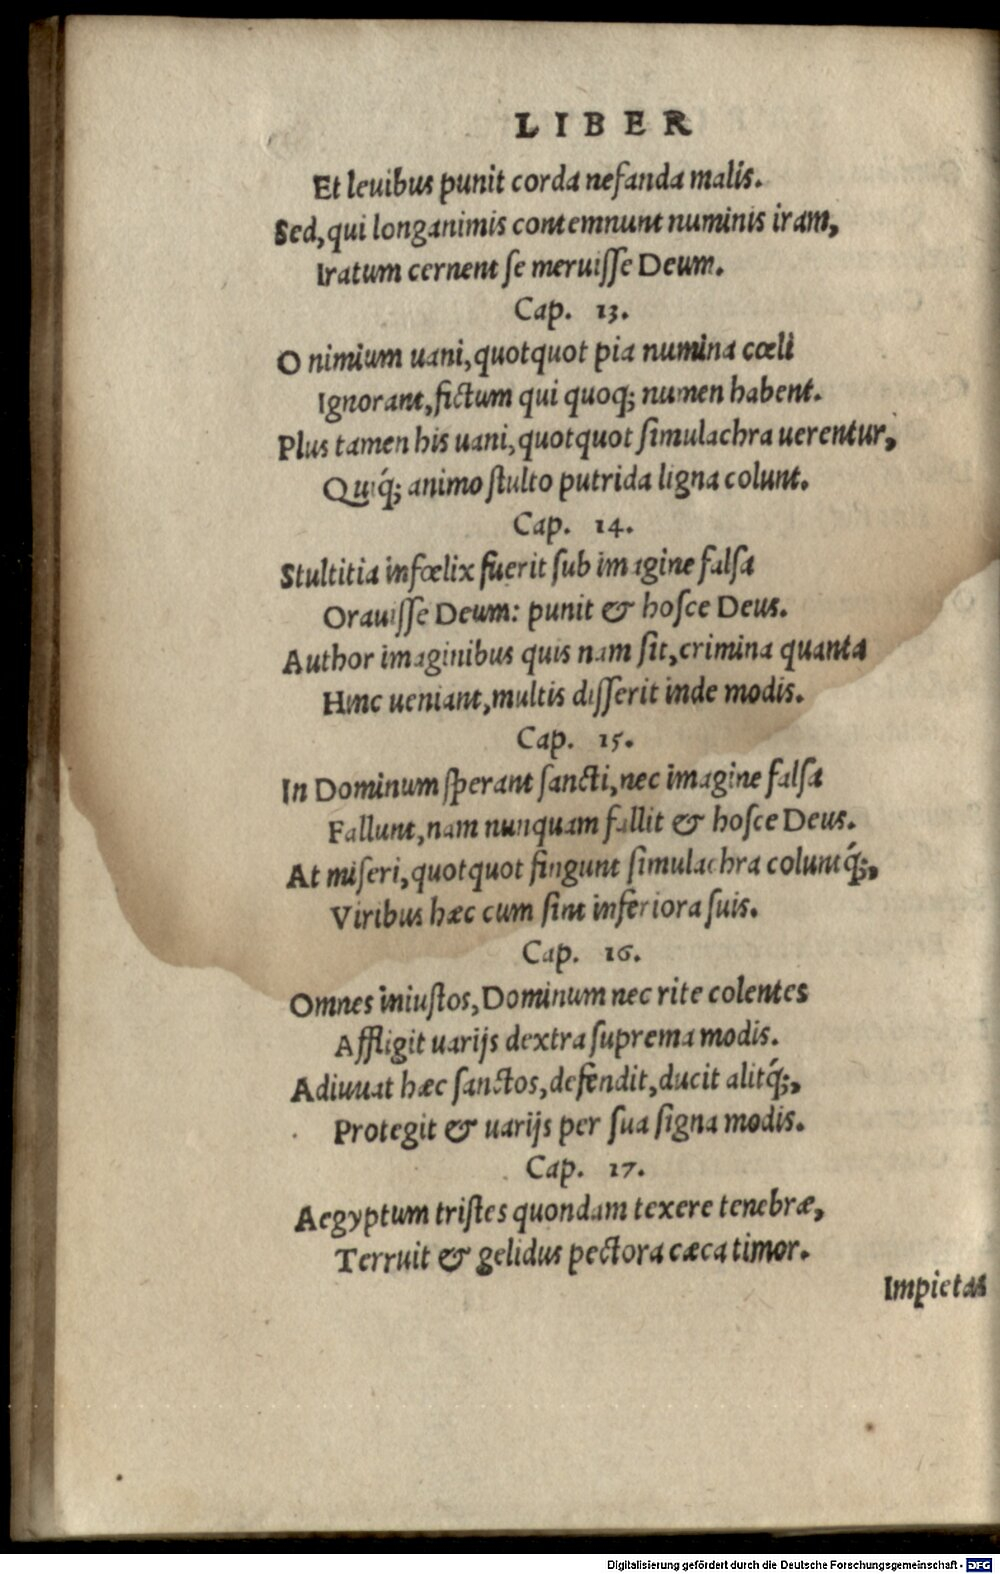 LIBER
Et leuibus punit corda nefanda malis.
Sed, qui longanimis contemnunt numinis iram,
Iratum cernent se meruisse Deum.
Cap. 13.
O nimium uani, quotquot pia numina cœli
Ignorant, fictum qui quoq; numen habent.
Plus tamen his uani, quotquot simulachra uerentur,
Quiq́; animo stulto putrida ligna colunt.
Cap. 14.
Stultitia infœlix fuerit sub imagine falsa
Orauisse Deum: punit & hosce Deus.
Author imaginibus quis nam sit, crimina quanta
Hinc ueniant, multis disserit inde modis.
Cap. 15.
In Dominum sperant sancti, nec imagine falsa
Fallunt, nam nunquam fallit & hosce Deus.
At miseri, quotquot fingunt simulachra coluntq́;,
Viribus hæc cum sint inferiora suis.
Cap. 16.
Omnes iniustos, Dominum nec rite colentes
Affligit uarijs dextra suprema modis.
Adiuuat hæc sanctos, defendit, ducit alitq́;,
Protegit & uarijs per sua signa modis.
Cap. 17.
Aegyptum tristes quondam texere tenebræ,
Terruit & gelidus pectora cæca timor.
Impietas
Digitalisierung gefördert durch die Deutsche Forschungsgemeinschaft - DFG